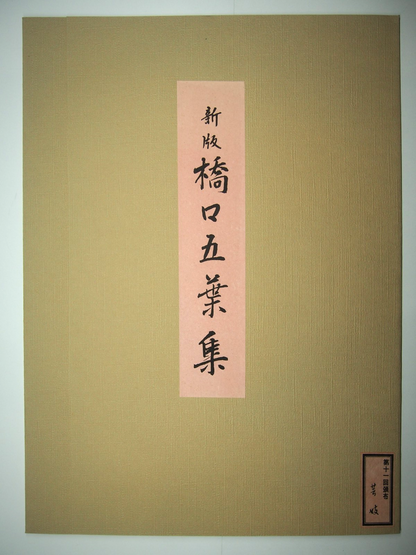 新版
橋口五葉集
第十一回頒布
芸妓